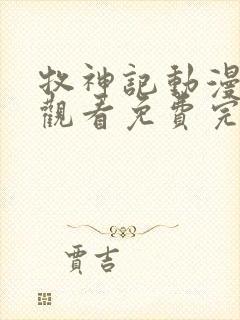 牧神記動漫
觀看免費完
賈吉